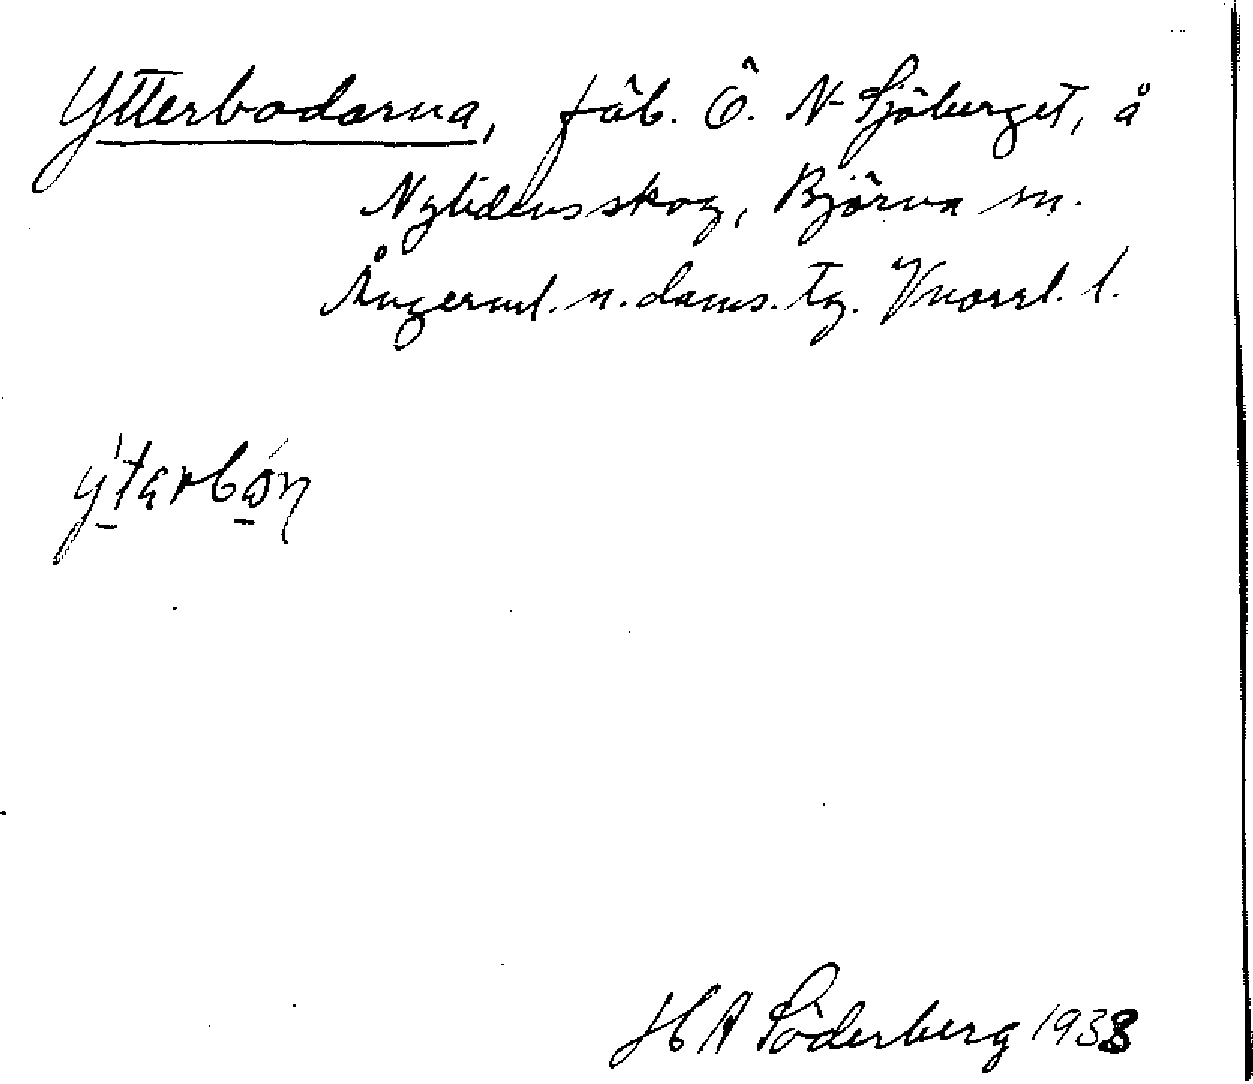 Ytterbodarna, fäb. Ö. N Sjöberget, å
Nylidens skog, Björna sn.
Ångerml. n. doms. tg. Vnorrl. l.
ýtarbǿn
H A Söderberg 1938